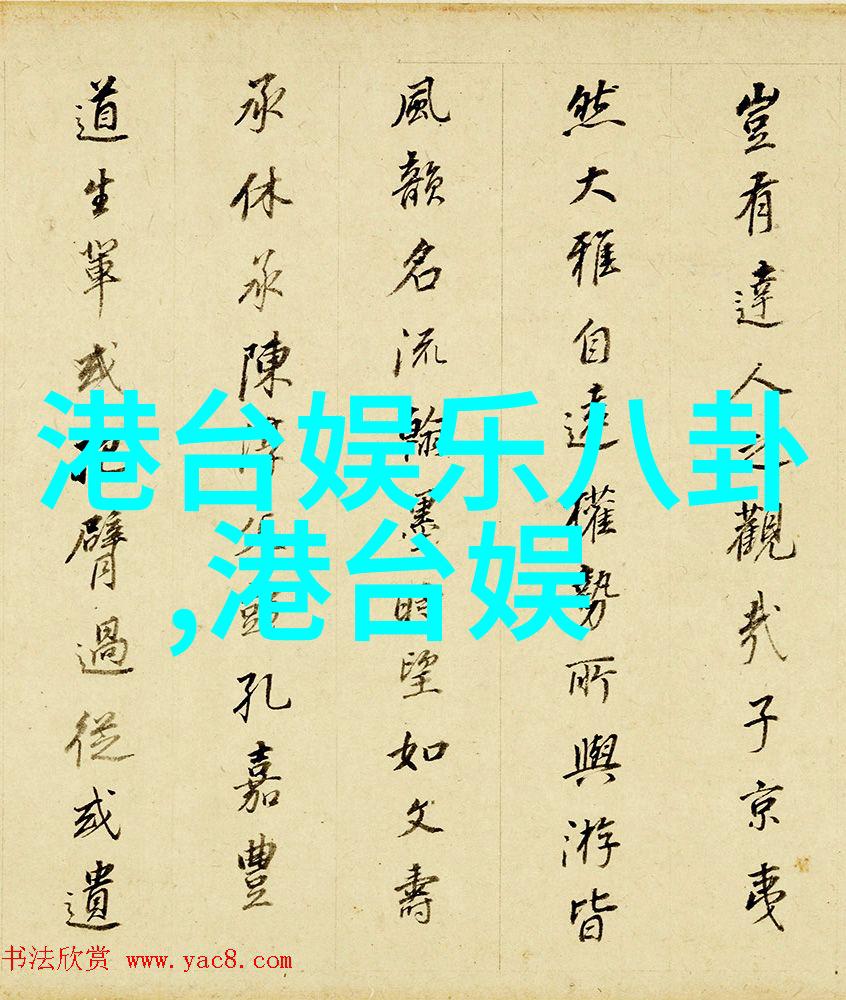 豈有達人之觀哉子京夷
然大雅自遠權勢所與游皆
風韻名流翰墨時望如文壽
承休承陳淳父彭孔嘉豐
道生軰或把臂過從或遺
港台娱乐八卦
,港台娱
书法欣赏 www.yac8.com